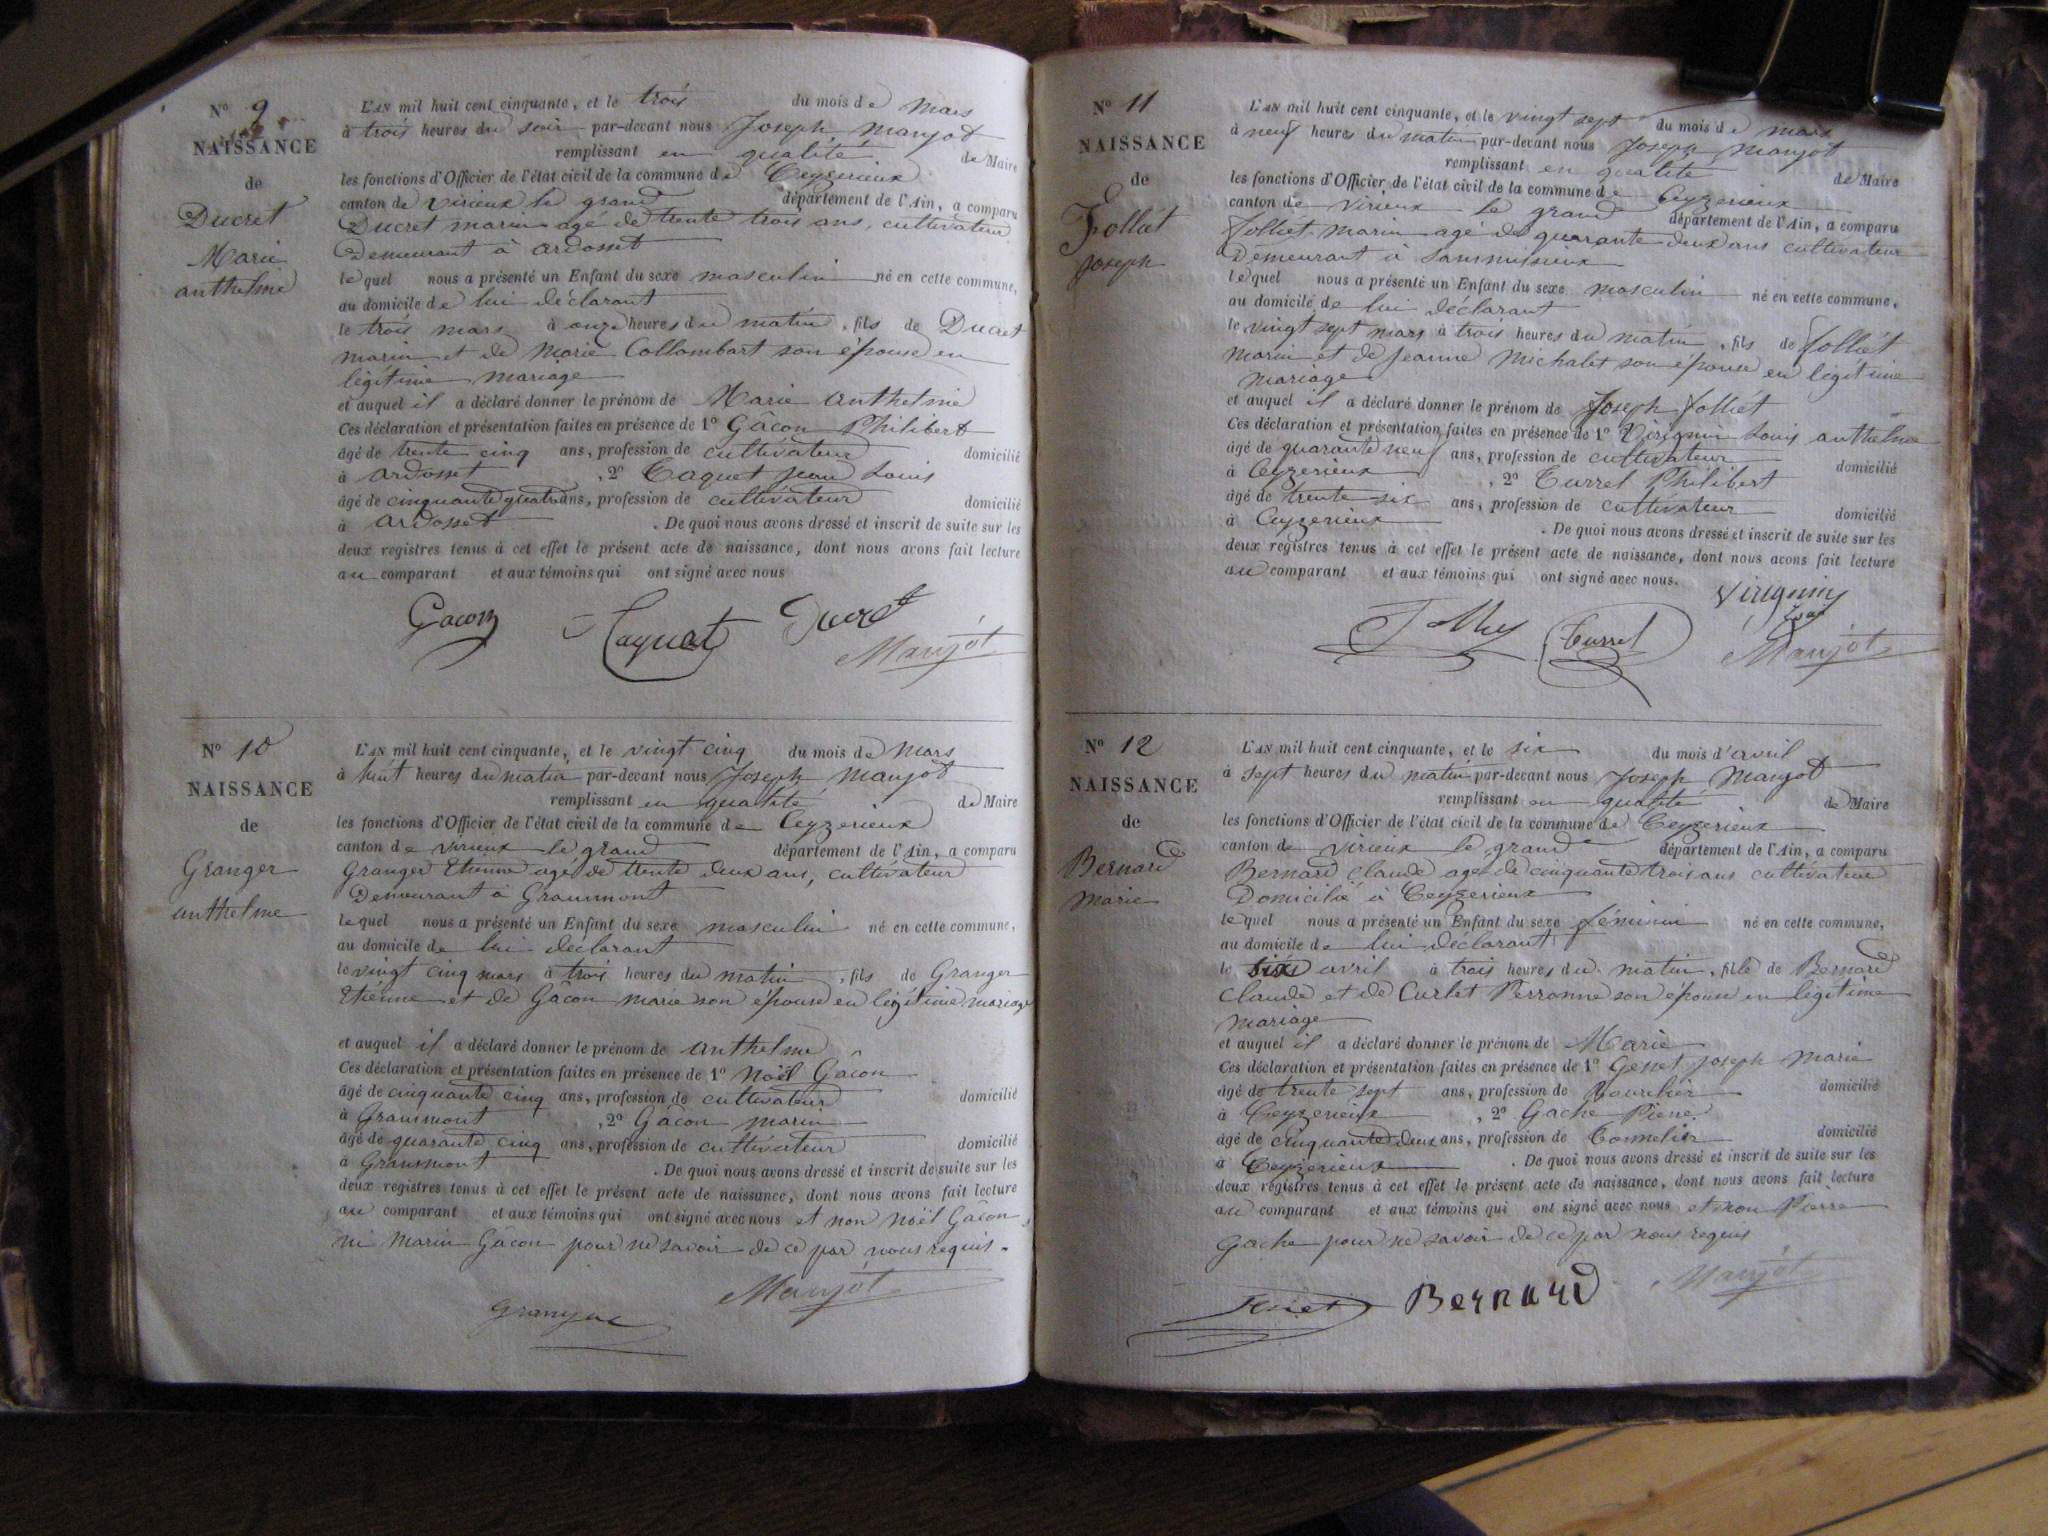 N° 9
NAISSANCE
de
Ducret
Marie
anthelme
L'AN mil huit cent cinquante, et le trois du mois de Mars
à trois heures du soir par-devant nous Joseph Manjot
remplissant en qualité de Maire
les fonctions d'Officier de l'état civil de la commune de Ceyzerieux
canton de virieux le grand département de l'Ain, a comparu
Ducret marin agé de trente trois ans, cultivateur
Demeurant à ardosset
le quel nous a présenté un Enfant du sexe masculin né en cette commune,
au domicile de lui déclarant
le trois mars à onze heures du matin, fils de Ducret
marin et de Marie Collombart son épouse en
légitime mariage
et auquel il a déclaré donner le prénom de Marie anthelme
Ces déclaration et présentation faites en présence de 1° Gâcon Philibert
âgé de trente cinq ans, profession de cultivateur domicilié
à ardosset, 2° Taquet Jean Louis
âgé de cinquante quatre ans, profession de cultivateur domicilié
à ardosset. De quoi nous avons dressé et inscrit de suite sur les
deux registres tenus à cet effet le présent acte de naissance, dont nous avons fait lecture
au comparant et aux témoins qui ont signé avec nous
Gacon Taquet Ducret
Manjot
N° 10
NAISSANCE
de
Granger
anthelme
L'AN mil huit cent cinquante, et le vingt cinq du mois de Mars
à huit heures du matin par-devant nous Joseph Manjot
remplissant en qualité de Maire
les fonctions d'Officier de l'état civil de la commune de Ceyzerieux
canton de virieux le grand département de l'Ain, a comparu
Granger Etienne agé de trente deux ans, cultivateur
Demeurant à Grammont
le quel nous a présenté un Enfant du sexe masculin né en cette commune,
au domicile de lui déclarant
le vingt cinq mars à trois heures du matin, fils de Granger
Etienne et de Gâcon marie son épouse en légitime mariage
et auquel il a déclaré donner le prénom de anthelme
Ces déclaration et présentation faites en présence de 1° Noël Gâcon
âgé de cinquante cinq ans, profession de cultivateur domicilié
à Grammont, 2° Gâcon marin
âgé de quarante cinq ans, profession de cultivateur domicilié
à Grammont. De quoi nous avons dressé et inscrit de suite sur les
deux registres tenus à cet effet le présent acte de naissance, dont nous avons fait lecture
au comparant et aux témoins qui ont signé avec nous et non Noël Gâcon
ni Marin Gâcon pour ne savoir de ce par nous requis.
Manjot
Granger
N° 11
NAISSANCE
de
Folliet
Joseph
L'AN mil huit cent cinquante, et le vingt sept du mois de mars
à neuf heures du matin par-devant nous Joseph Manjot
remplissant en qualité de Maire
les fonctions d'Officier de l'état civil de la commune de Ceyzerieux
canton de virieux le grand département de l'Ain, a comparu
Folliet marin agé de quarante deux ans cultivateur
Demeurant à
le quel nous a présenté un Enfant du sexe masculin né en cette commune,
au domicile de lui déclarant
le vingt sept mars à trois heures du matin, fils de folliet
marin et de Jeanne Michalet son épouse en légitime
mariage
et auquel il a déclaré donner le prénom de Joseph folliet
Ces déclaration et présentation faites en présence de 1° Virignin Louis anthelme
âgé de quarante neuf ans, profession de cultivateur domicilié
à Ceyzerieux, 2° Turrel Philibert
âgé de trente six ans, profession de cultivateur domicilié
à Ceyzerieux. De quoi nous avons dressé et inscrit de suite sur les
deux registres tenus à cet effet le présent acte de naissance, dont nous avons fait lecture
au comparant et aux témoins qui ont signé avec nous.
Virignin
Turrel
Manjot
N° 12
NAISSANCE
de
Bernard
Marie
L'AN mil huit cent cinquante, et le six du mois d'avril
à sept heures du matin par-devant nous Joseph Manjot
remplissant en qualité de Maire
les fonctions d'Officier de l'état civil de la commune de Ceyzerieux
canton de virieux le grand département de l'Ain, a comparu
Bernard Claude agé de cinquante trois ans cultivateur
Domicilié à Ceyzerieux
le quel nous a présenté un Enfant du sexe féminin né en cette commune,
au domicile de lui déclarant
le six avril à trois heures du matin, fille de Bernard
Claude et de Curtet Perronne son épouse en légitime
mariage
et auquel il a déclaré donner le prénom de Marie
Ces déclaration et présentation faites en présence de 1° Genet Joseph Marie
âgé de trente sept ans, profession de domicilié
à Ceyzerieux, 2° Gache Pierre
âgé de cinquante deux ans, profession de Tonnelier domicilié
à Ceyzerieux. De quoi nous avons dressé et inscrit de suite sur les
deux registres tenus à cet effet le présent acte de naissance, dont nous avons fait lecture
au comparant et aux témoins qui ont signé avec nous et non Pierre
Gache pour ne savoir de ce par nous requis
Bernard Manjot